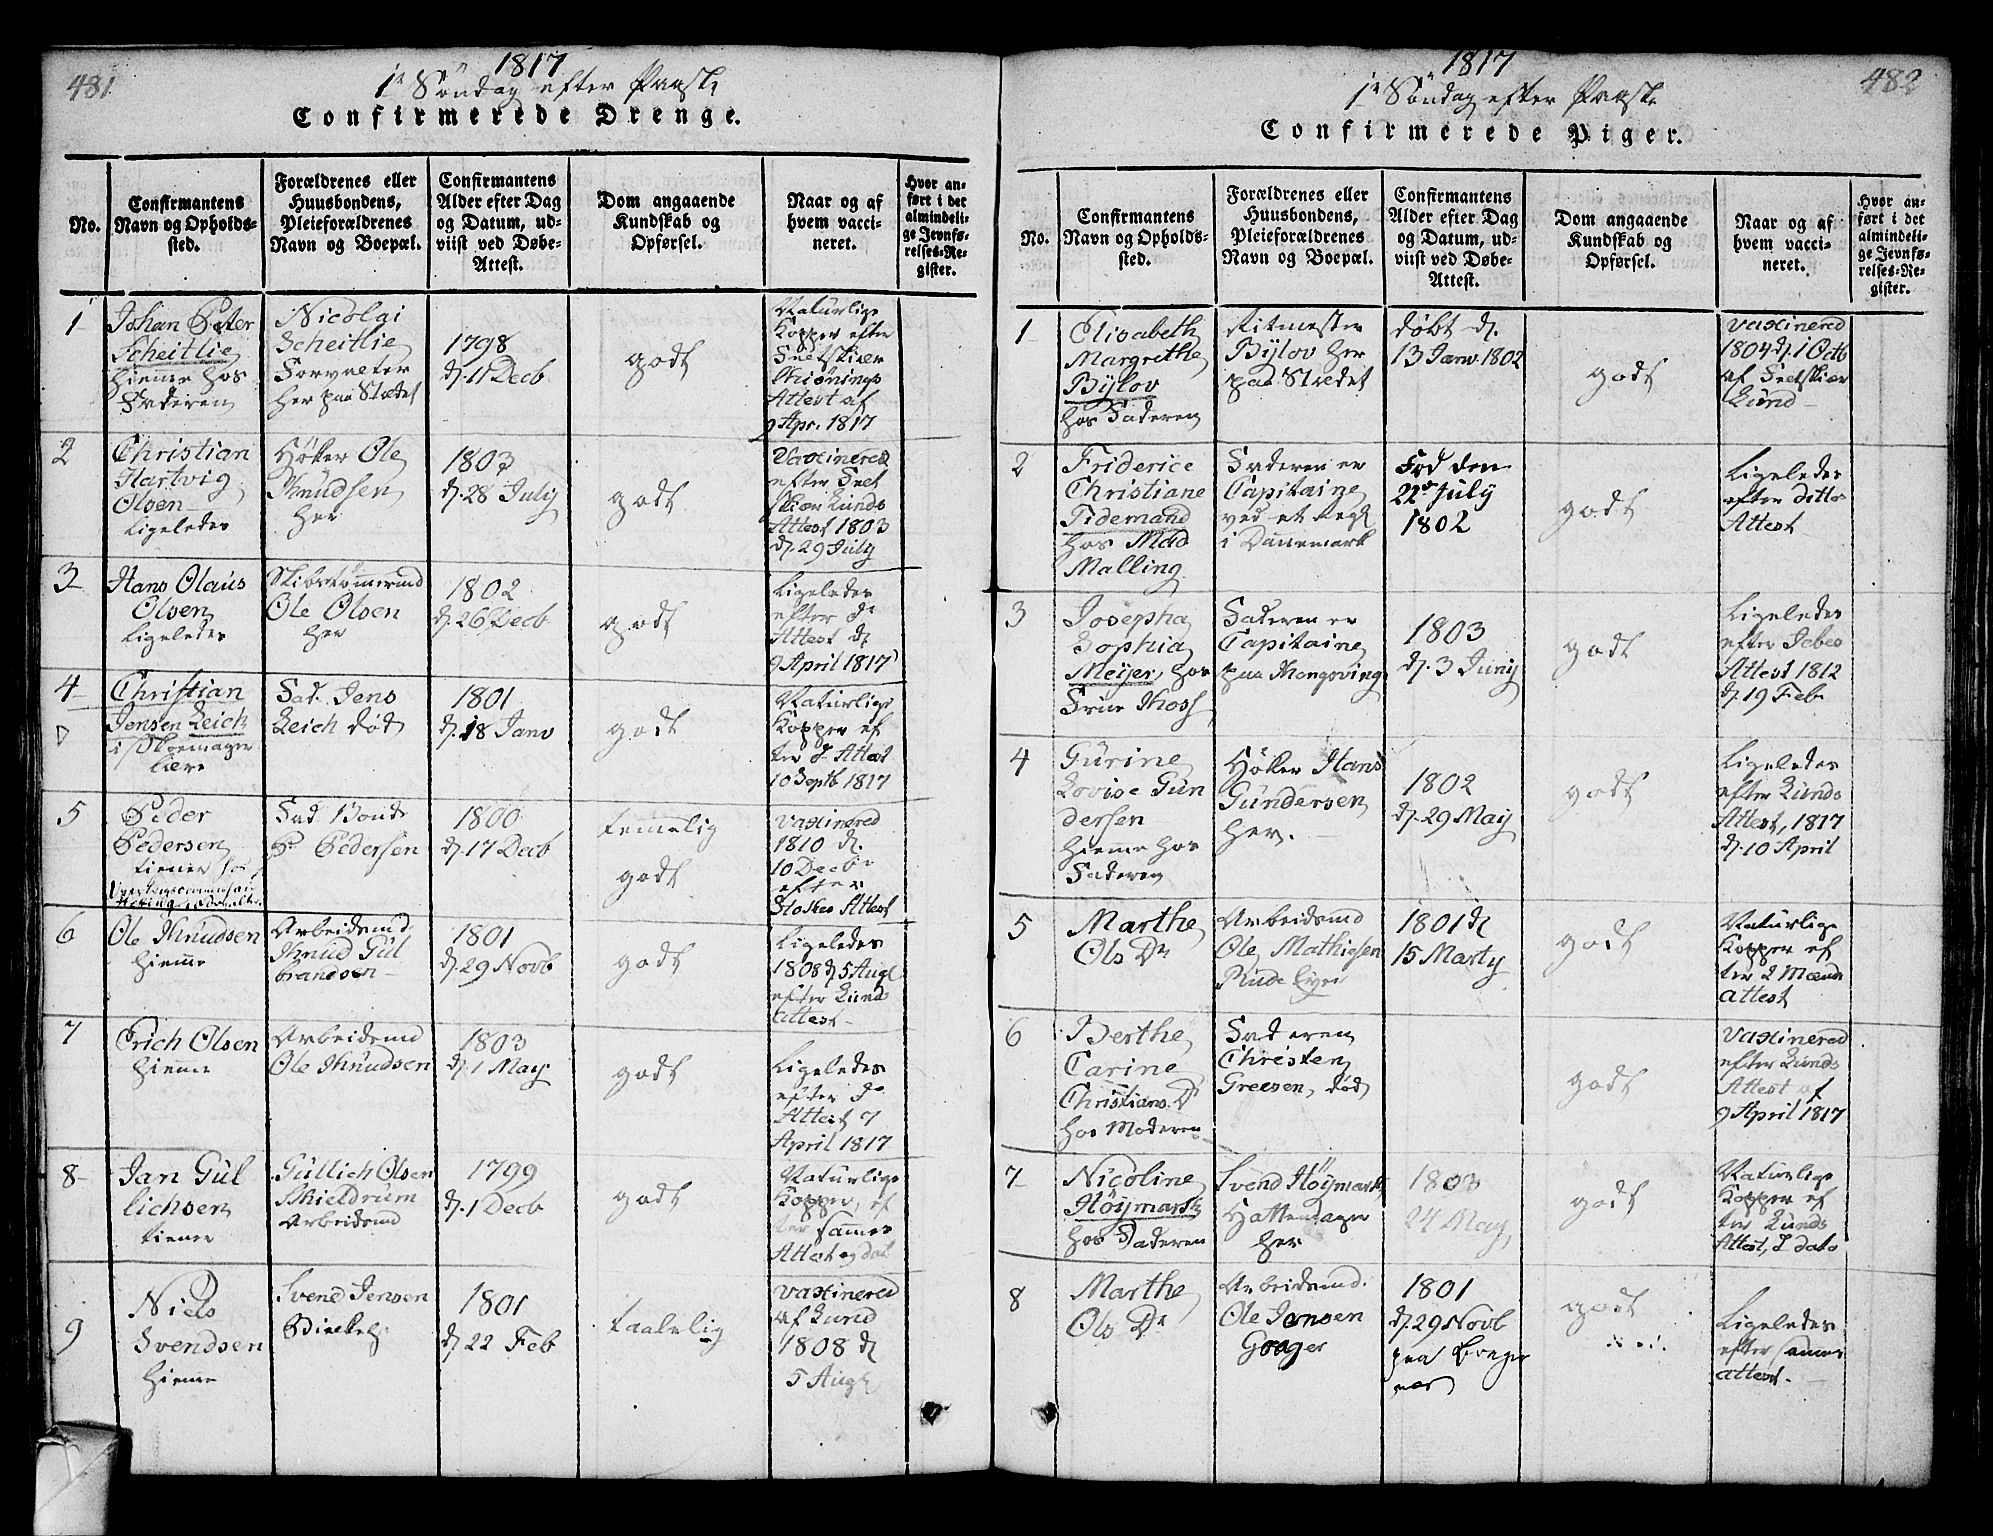 481
1817
1ste Söndag efter Paaske
Confirmerede Drenge.
No.
Confirmantens
Navn og Opholds-
sted.
Forældrenes eller
Huusbondens,
Pleieforældrenes
Navn og Boepæl.
Confirmantens
Alder efter Dag
og Datum, ud-
viist ved Døbe-
Attest.
Dom angaaende
Kundskab og
Opførsel.
Naar og af
hvem vacci-
neret.
Hvor an-
ført i det
almindeli-
ge Jevnfø-
relses-Re-
gister.
1
Johan Peter
Scheitlie
hieme hos
Faderen
Nicolai
Scheitlie
Forvalter
her paa Stædet
1798
d. 11 Decb
godt
Naturlige
Kopper efter
Feltskiær
Attest af
9 Apr. 1817
2
Christian
Hartvig
Olsen
Ligeledes
Höker Ole
Knudsen
her
1803
d. 28 July
godt
Vaxinered
efter Felt
skiær Lunds
Attest 1803
d. 29 July
3
Hans Olaus
Olsen
Ligeledes
Skibstömermd
Ole Olsen
her
1802
d. 26 Decb
godt
Ligeledes
efter do
Attest d
9 April 1817
4
Christian
Jensen Leich
i Skoemager
lære
Fad. Jens
Leich död
1801
d. 18 Janv
godt
Naturlige
Kopper ef
ter Attest
10 Septb 1817
5
Peder
Pedersen
tiener hos
Fad. Bonde
P. Pedersen
1800
d. 17 Decb
temmelig
godt
vaxinered
1810 d.
10 Decbr
efter
Attest
6
Ole Knudsen
hieme
Arbeidsmd.
Knud Gul
brandsen
1801
d. 29 Novb
godt
Ligeledes
1808 d. 5 Aug
efter Lunds
attest
7
Erich Olsen
hieme
Arbeidsmd
Ole Knudsen
1803
d. 1 May
godt
Ligeledes
efter do
Attest 9
April 1817
8
Jan Gul
lichsen
tiener
Gullich Olsen
Skieldrum
Arbeidsmd
1799
d. 1 Decb
godt
Naturlige
Kopper, ef
ter samme
Attest
9
Niels
Svendsen
hieme
Svend Jensen
1801
d. 22 Feb
taalelig
vaxinered
af Lund
1808 d
5 Aug
482
1817
1ste Söndag efter Paaske
Confirmerede Piger.
No.
Confirmantens
Navn og Opholds-
sted.
Forældrenes eller
Huusbondens,
Pleieforældrenes
Navn og Boepæl.
Confirmantens
Alder efter Dag
og Datum, ud-
viist ved Døbe-
Attest.
Dom angaaende
Kundskab og
Opførsel.
Naar og af
hvem vacci-
neret.
Hvor an-
ført i det
almindeli-
ge Jevnfø-
relses-Re-
gister.
1
Elisabeth
Margrethe
Bÿlov
hos Faderen
Ritmester
Bÿlov her
paa Stedet
döbt d.
13 Janv. 1802
godt
vaxinered
1804 d. 1 Octb
af Feltskiær
Lund
2
Friderice
Christiane
Tidemand
hos Mad
Malling
Faderen er
Capitaine
ved et Regt
i Dannemark
Föd den
22de July
1802
godt
Ligeledes
efter ditto
Attest
3
Josepha
Sophia
Meÿer, hos
Frue Moss
Faderen er
Capitaine
paa Kongsving
1803
d. 3 Juny
godt
Ligeledes
efter
Attest 1812
d. 19 Feb
4
Gurine
Lovise Gun
dersen
hieme hos
Faderen
Höker Hans
Gundersen
her.
1802
d. 29 May
godt
Ligeledes
efter Lunds
Attest, 1817
d. 10 April
5
Marthe
Ols Dr
Arbeidsmd
Ole Mathisen
1801 d
15 Marty
godt
Naturlige
Kopper ef
ter 2 Mænds
attest
6
Berthe
Carine
Christians. D
hos Moderen
Faderen
Christen
Greesen, död
godt
Vaxinered
efter Lunds
Attest af
9 April 1817
7
Nicoline
Höÿmark
hos Faderen
Svend Höÿmark
Hattemager
her
1803
24 May
godt
Naturlige
Kopper ef
ter Lunds
Attest, dato
8
Marthe
Ols Dr
Arbeidsmd.
Ole Jensen
1801
d. 29 Novb
paa Brager
næs
godt
Ligeledes
efter samme
attest.